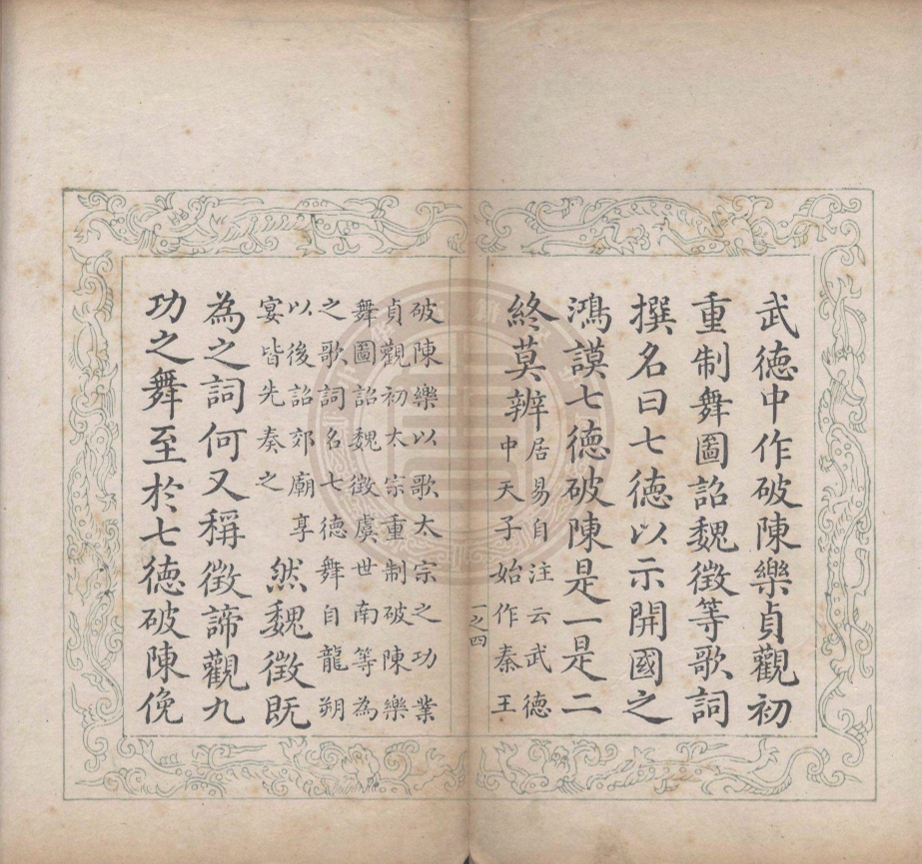 武德中作破陳樂貞觀初
重制舞圖詔魏徵等歌詞
撰名曰七德以示開國之
鴻謨七德破陳是一是二
終莫辨居易自注云武德
中天子始作秦王
一之四
破陳樂以歌太宗之功業
貞觀初太宗重制破陳樂
舞圖詔魏徵虞世南等為
之歌詞名七德舞自龍朔
以後詔郊廟享
宴皆先奏之
然魏徵既
為之詞何又稱徵諦觀九
功之舞至於七德破陳俛